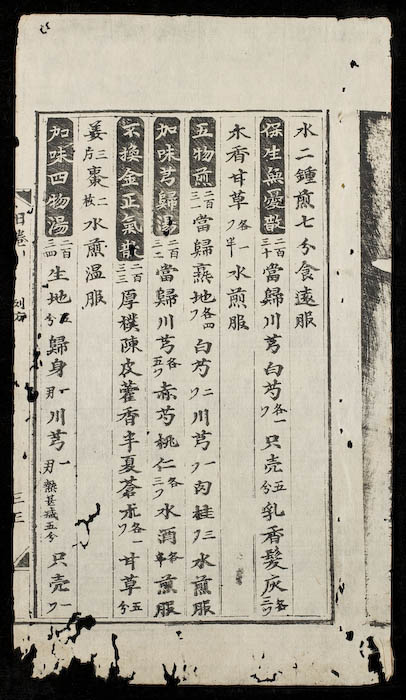 水二鍾煎七分食遠服
保生無憂散二百三十當歸川芎白芍各一フ只壳五分乳香髮灰各三フ
木香甘草各一フ半水煎服
五物煎二百三一當歸熟地各四フ白芍二フ川芎一フ肉桂三フ水煎服
加味芎歸湯二百三二當歸川芎各五フ赤芍桃仁各三フ水酒各半煎服
不換金正氣散二百三三厚樸陳皮藿香半夏蒼朮各一フ甘草五分
姜三片棗二枚水煎温服
加味四物湯二百三四生地五分歸身一刃川芎一刃熱甚减五分只壳一フ